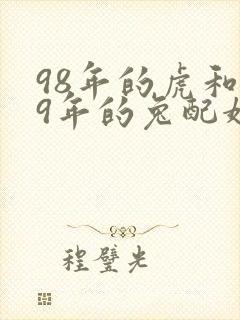 98年的虎和
9年的兔配
程璧光